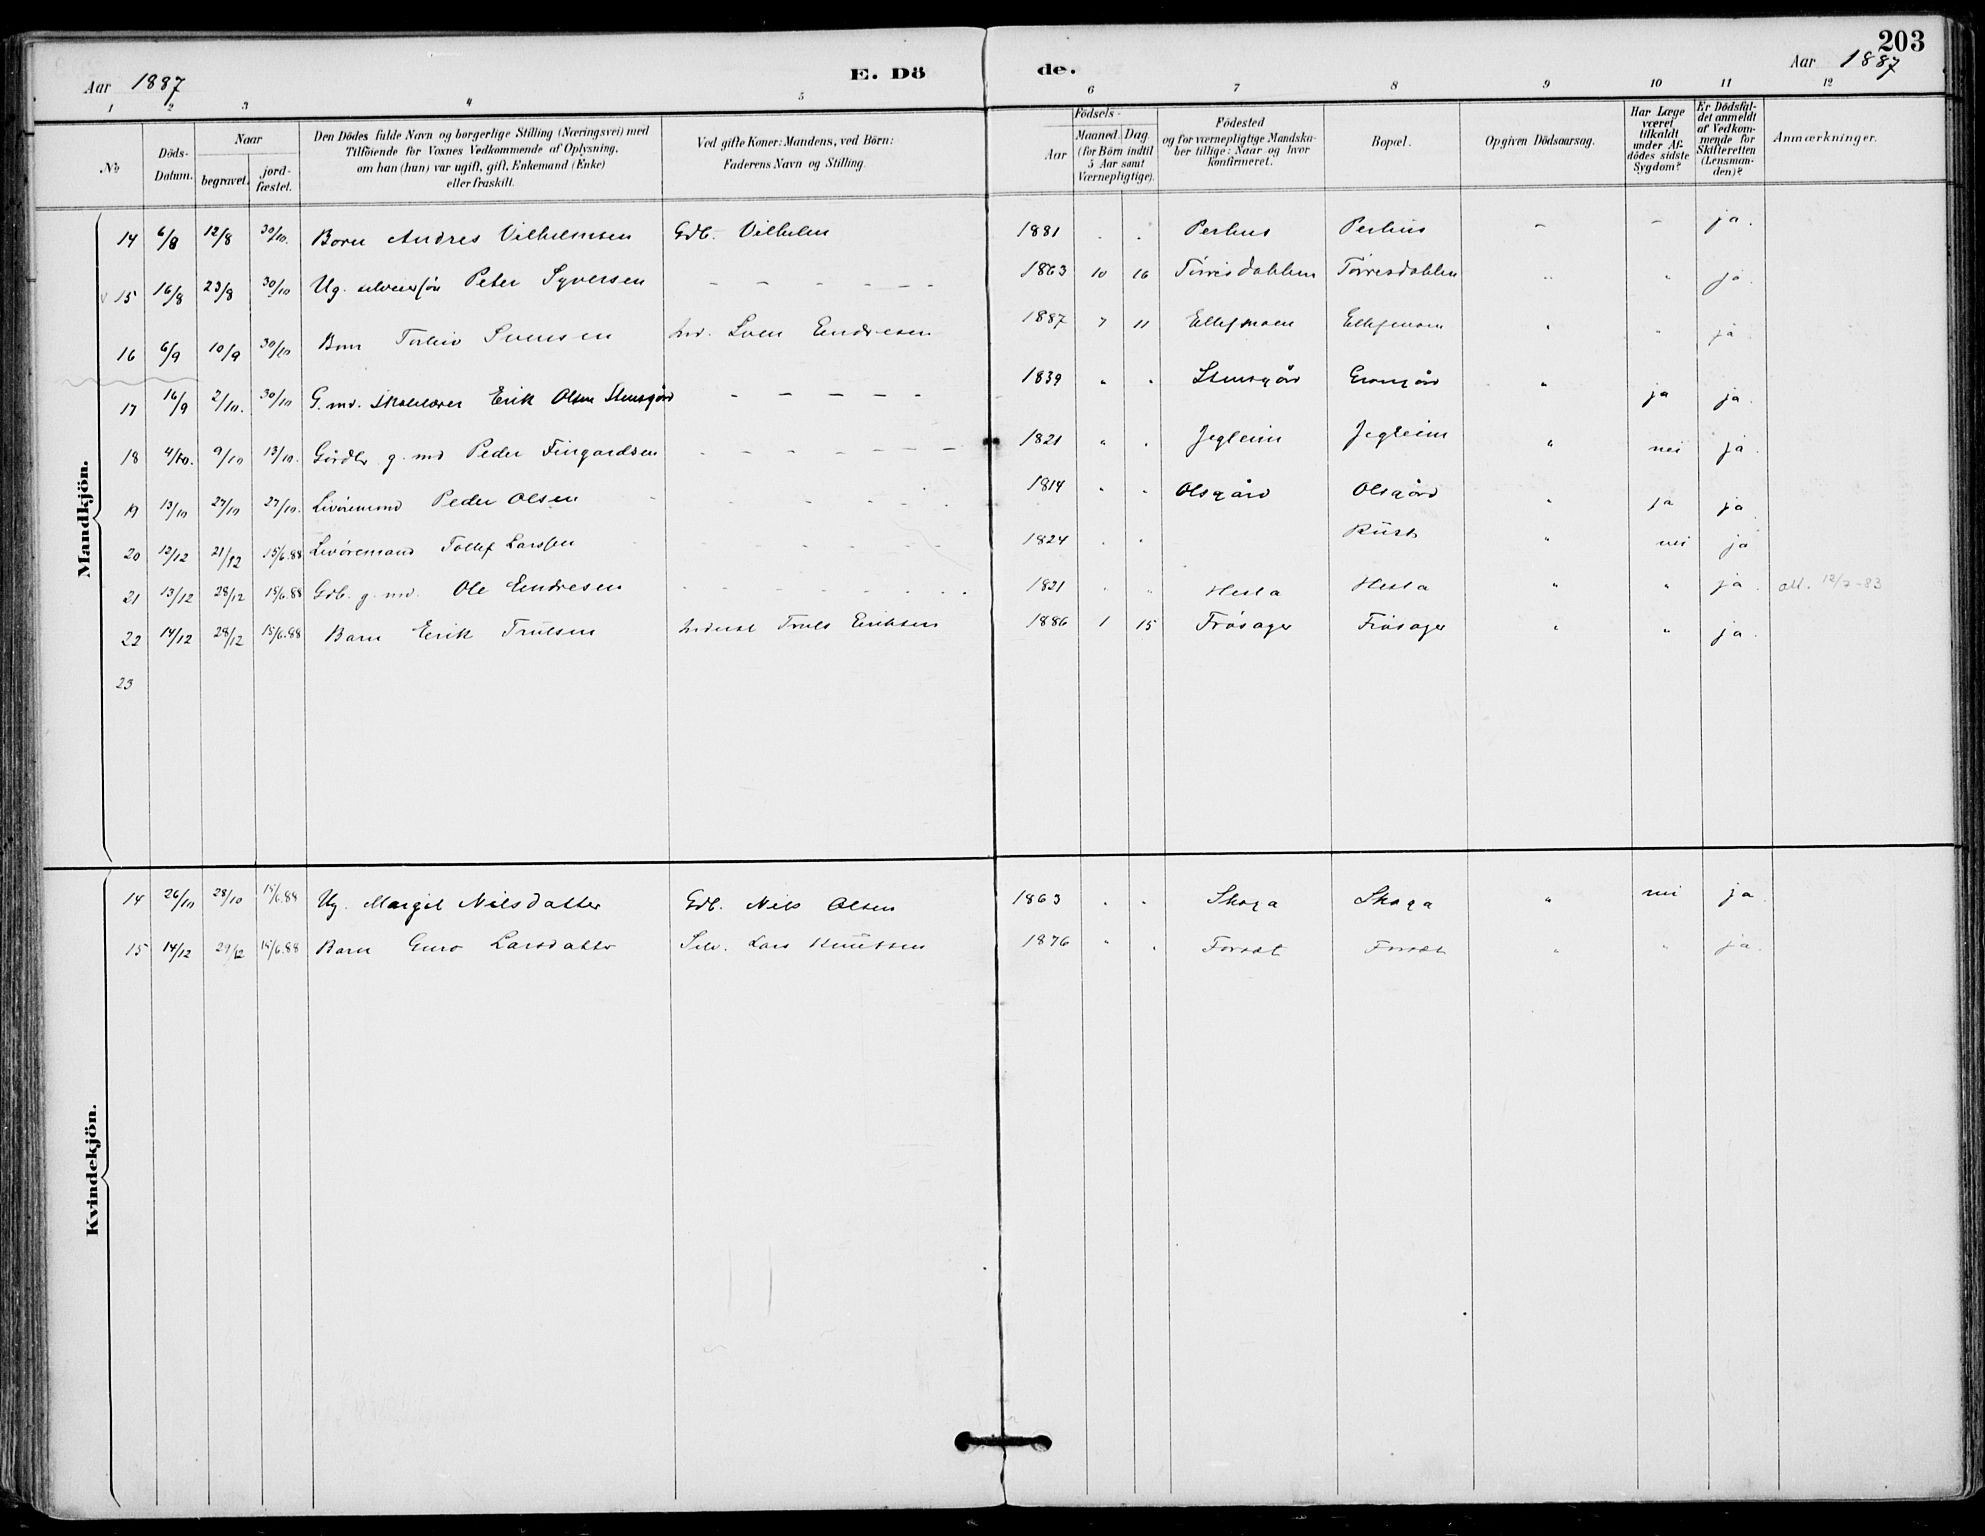 203
Aar 1887 E. Dö de. Aar 1887
1 2 3 4 5 6 7 8 9 10 11 12
No
Döds-Datum.
Naar
begravet.
jord-fæstet.
Den Dödes fulde Navn og borgerlige Stilling (Næringsvei) med
Tilföiende for Voxnes Vedkommende af Oplysning,
om han (hun) var ugift, gift, Enkemand (Enke)
eller fraskilt.
Ved gifte Koner: Mandens, ved Börn:
Faderens Navn og Stilling.
Födsels-
Aar
Maaned. Dag.
(for Börn indtil
5 Aar samt
Værnepligtige).
Födested
og for værnepligtige Mandska-
ber tillige: Naar og hvor
konfirmeret.
Bopæl.
Opgiven Dödsaarsag.
Har Læge
været
tilkaldt
under Af-
dödes sidste
Sygdom?
Er Dödsfal-
det anmeldt
af Vedkom-
mende for
Skifteretten
(Lensman-
den)?
Anmærkninger.
Mandkjön.
14 6/8 12/8 30/10. Barn Andres Vilhelmsen Gdb. Vilhelm 1881 . . Perhus Perhus - - ja.
15 16/8 23/8 30/10 Ug. Peter Syversen - - - - - - 1863 10 16 Torrisdahlen Torresdahlen " " ja.
16 6/9 10/9 30/10 Barn Torleiv Svensen Ind. Sven Endresen 1887 7 11 Ellefmoen Ellefmoen " " ja.
17 16/9 2/10. 30/10 G. md. Skolelærer Erik Olsen Stensgård - - - - - 1839 " " Stensgård " ja ja.
18 4/10. 9/10 13/10. Gårdbr g. md Peder Fingardsen - - - - - - 1821 " . Jegleim Jegleim " nei ja.
19 13/10 27/10 27/10. Livöremand Peder Olsen - - - - 1814 . " Olsgård Olsgård " ja ja.
20 12/12 21/12 15/6.88 Livöremand Tollef Larssen - - - - 1824 . . Rust " nei ja
21 13/12 28/12 15/6.88 Gdb. g. md. Ole Endresen - - - - - - 1821 . " Hesla Hesla " " ja. att. 12/7-83
22 14/12 28/12 15/6.88 Barn Erik Trulsen Inderst Truls Eriksen 1886 1 15 Fråsager Fråsager " " ja.
23
Kvindekjön.
14 26/10 28/10 15/6.88 Ug. Margit Nilsdatter Gdb. Nels Olsen 1863 . . Skaga Skaga " nei ja.
15 14/12 29/12 15/6.88 Barn Guro Larsdatter Selv. Lars Knutsen 1876 " " Forsæt Forsæt " " ja.